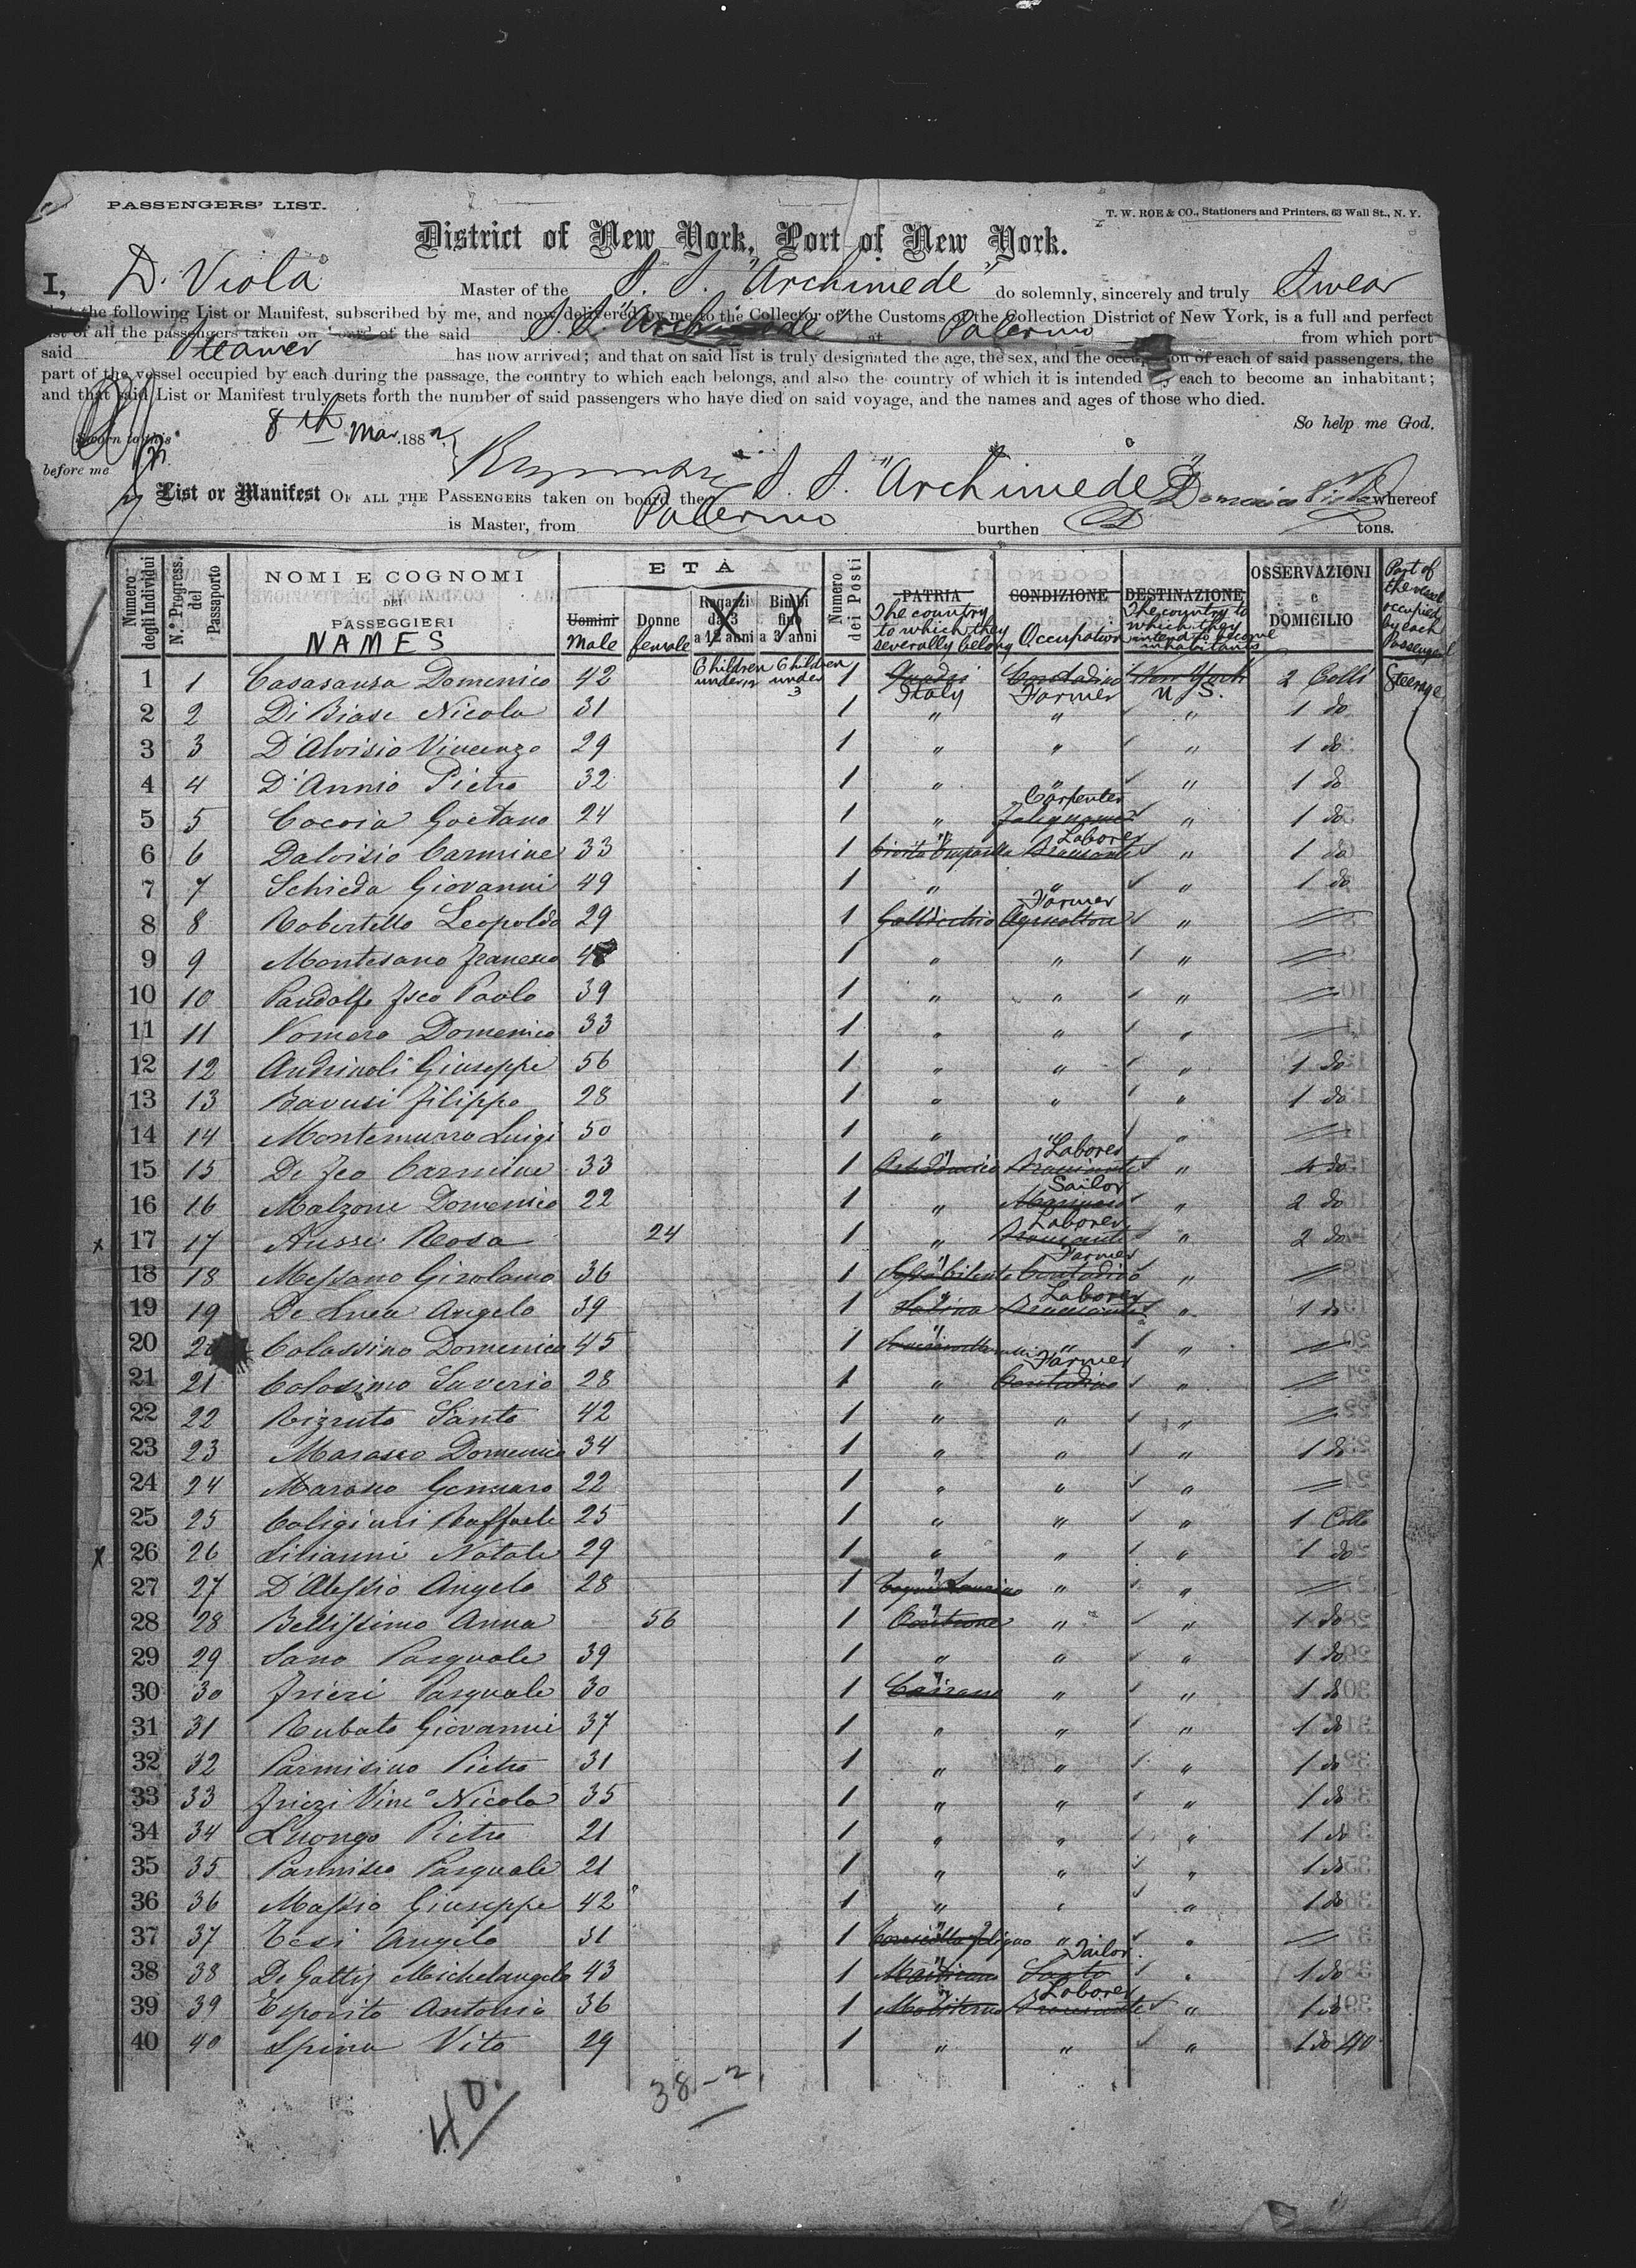 PASSENGERS' LIST.
T. W. ROE & CO., Stationers and Printers, 63 Wall St., N. Y.
District of New York, Port of New York.
I, D. Viola Master of the S. S. "Archimede" do solemnly, sincerely and truly Swear
the following List or Manifest, subscribed by me, and now delivered by me to the Collector of the Customs of the Collection District of New York, is a full and perfect
list of all the passengers taken on board of the said S. S. "Archimede" at Palermo from which port
said Steamer has now arrived; and that on said list is truly designated the age, the sex, and the occupation of each of said passengers, the
part of the vessel occupied by each during the passage, the country to which each belongs, and also the country of which it is intended by each to become an inhabitant;
and that said List or Manifest truly sets forth the number of said passengers who have died on said voyage, and the names and ages of those who died.
So help me God.
Sworn to this 8th Mar. 1882
before me
List or Manifest OF ALL THE PASSENGERS taken on board the S. S. "Archimede" whereof
Domenico Viola
is Master, from Palermo burthen tons.
Numero degli Individui
N.º Progress. del Passaporto
NOMI E COGNOMI
DEI
PASSEGGIERI
NAMES
ETÀ
Uomini
Male
Donne
female
Ragazzi da 3 a 12 anni
Children under 12
Bimbi fino a 3 anni
Children under 3
Numero dei Posti
PATRIA
The country to which they severally belong
CONDIZIONE
Occupation
DESTINAZIONE
The country to which they intend to become inhabitants
OSSERVAZIONI
e
DOMICILIO
Part of the vessel occupied by each Passenger
1 1 Casasanta Domenico 42 1 Italy Contadino Farmer New York U. S. 2 Colli Steerage
2 2 Di Biase Nicola 31 1 " " " 1 do
3 3 D'Aloisio Vincenzo 29 1 " " " 1 do
4 4 D'Annio Pietro 32 1 " " " 1 do
5 5 Cocoia Gaetano 24 1 " Carpenter Falegname " 1 do
6 6 Daloisio Carmine 33 1 " Laborer Bracciante " 1 do
7 7 Schieda Giovanni 49 1 " " " 1 do
8 8 Robertello Leopoldo 29 1 Gallicchio Farmer Agricoltore "
9 9 Montesano Francesco 48 1 " " "
10 10 Pandolfo Fsco Paolo 39 1 " " "
11 11 Vomero Domenico 33 1 " " "
12 12 Andrivoli Giuseppe 56 1 " " " 1 do
13 13 Bavusi Filippo 28 1 " " " 1 do
14 14 Montemurro Luigi 50 1 " " "
15 15 De Feo Carmine 33 1 " Laborer Bracciante " 4 do
16 16 Malzone Domenico 22 1 " Sailor Marinaro " 2 do
x 17 17 Aussi Rosa 24 1 " Laborer Bracciante " 2 do
18 18 Messano Girolamo 36 1 " Farmer Contadino "
19 19 De Luca Angelo 39 1 " Laborer Bracciante " 1 do
20 20 Colassino Domenico 45 1 " " "
21 21 Colosimo Saverio 28 1 " Farmer Contadino "
22 22 Rizzuto Santo 42 1 " " "
23 23 Marasco Domenico 34 1 " " " 1 do
24 24 Marasco Gennaro 22 1 " " "
25 25 Caligiuri Raffaele 25 1 " " " 1 Collo
x 26 26 Lilianni Natale 29 1 " " " 1 do
27 27 D'Alessio Angelo 28 1 " " "
28 28 Bellissimo Anna 56 1 " " " 1 do
29 29 Sano Pasquale 39 1 " " " 1 do
30 30 Frieri Pasquale 30 1 Cairano " " 1 do
31 31 Rubato Giovanni 37 1 " " " 1 do
32 32 Parmisino Pietro 31 1 " " " 1 do
33 33 Frieri Vinc.o Nicola 35 1 " " " 1 do
34 34 Luongo Pietro 21 1 " " " 1 do
35 35 Parmisco Pasquale 21 1 " " " 1 do
36 36 Massio Giuseppe 42 1 " " " 1 do
37 37 Tesi Angelo 31 1 " " "
38 38 De Gattis Michelangelo 43 1 " Tailor Sarto " 1 do
39 39 Esposito Antonio 36 1 Moliterno Laborer Bracciante " 1 do
40 40 Spina Vito 29 1 " " " 1 do 40
40.
38-2.